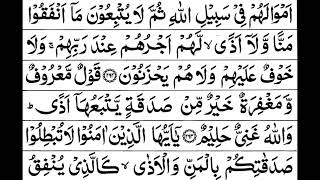 اَمْوَالَهُمْ فِیْ سَبِیْلِ اللّٰهِ ثُمَّ لَا یُتْبِعُوْنَ مَاۤ اَنْفَقُوْا
مَنًّا وَّلَاۤ اَذًیۙ لَّهُمْ اَجْرُهُمْ عِنْدَ رَبِّهِمْۚ وَلَا
خَوْفٌ عَلَیْهِمْ وَلَا هُمْ یَحْزَنُوْنَ ﴿۲۶۲﴾ قَوْلٌ مَّعْرُوْفٌ
وَّمَغْفِرَةٌ خَیْرٌ مِّنْ صَدَقَةٍ یَّتْبَعُهَاۤ اَذًیؕ
وَاللّٰهُ غَنِیٌّ حَلِیْمٌ ﴿۲۶۳﴾ یٰۤاَیُّهَا الَّذِیْنَ اٰمَنُوْا لَا تُبْطِلُوْا
صَدَقٰتِكُمْ بِالْمَنِّ وَالْاَذٰیۙ كَالَّذِیْ یُنْفِقُ